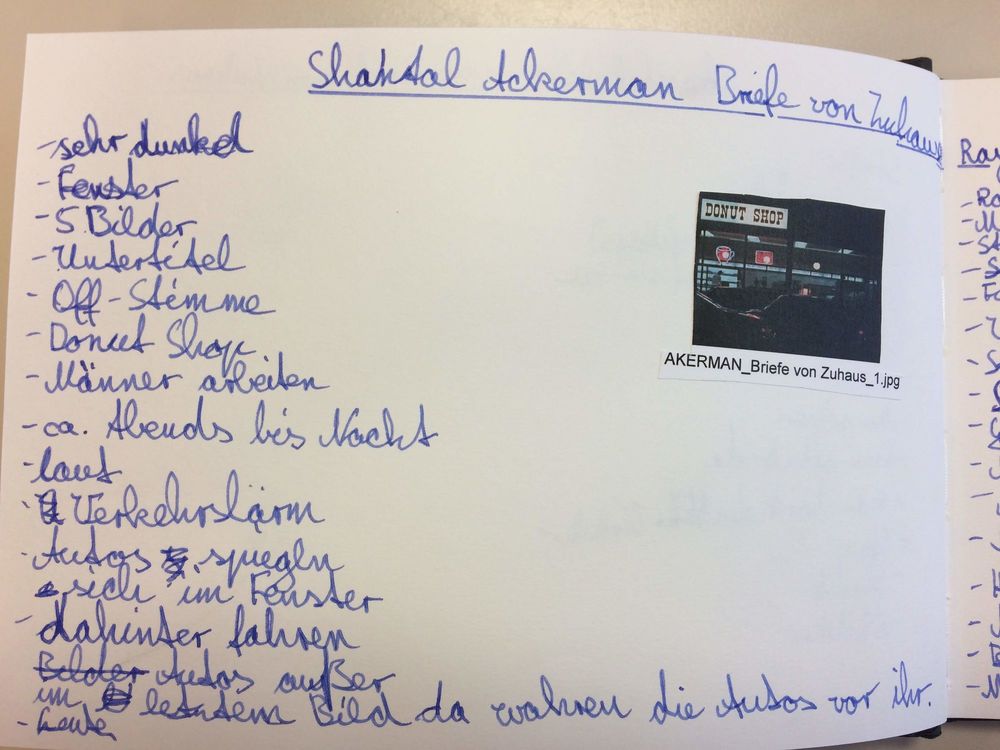 Shaktal Ackerman Briefe von Zuhause
- sehr dunkel
- Fenster
- 5 Bilder
- Untertitel
- Off-Stimme
- Donut Shop
- Männer arbeiten
- ca. Abends bis Nackt
- laut
- Verkehrslärm
- Autos spiegln
sich im Fenster
- dahinter fahren
Bilder Autos außer
im letztem Bild da wahren die Autos vor ihr.
- Leute
DONUT SHOP
AKERMAN_Briefe von Zuhaus_1.jpg